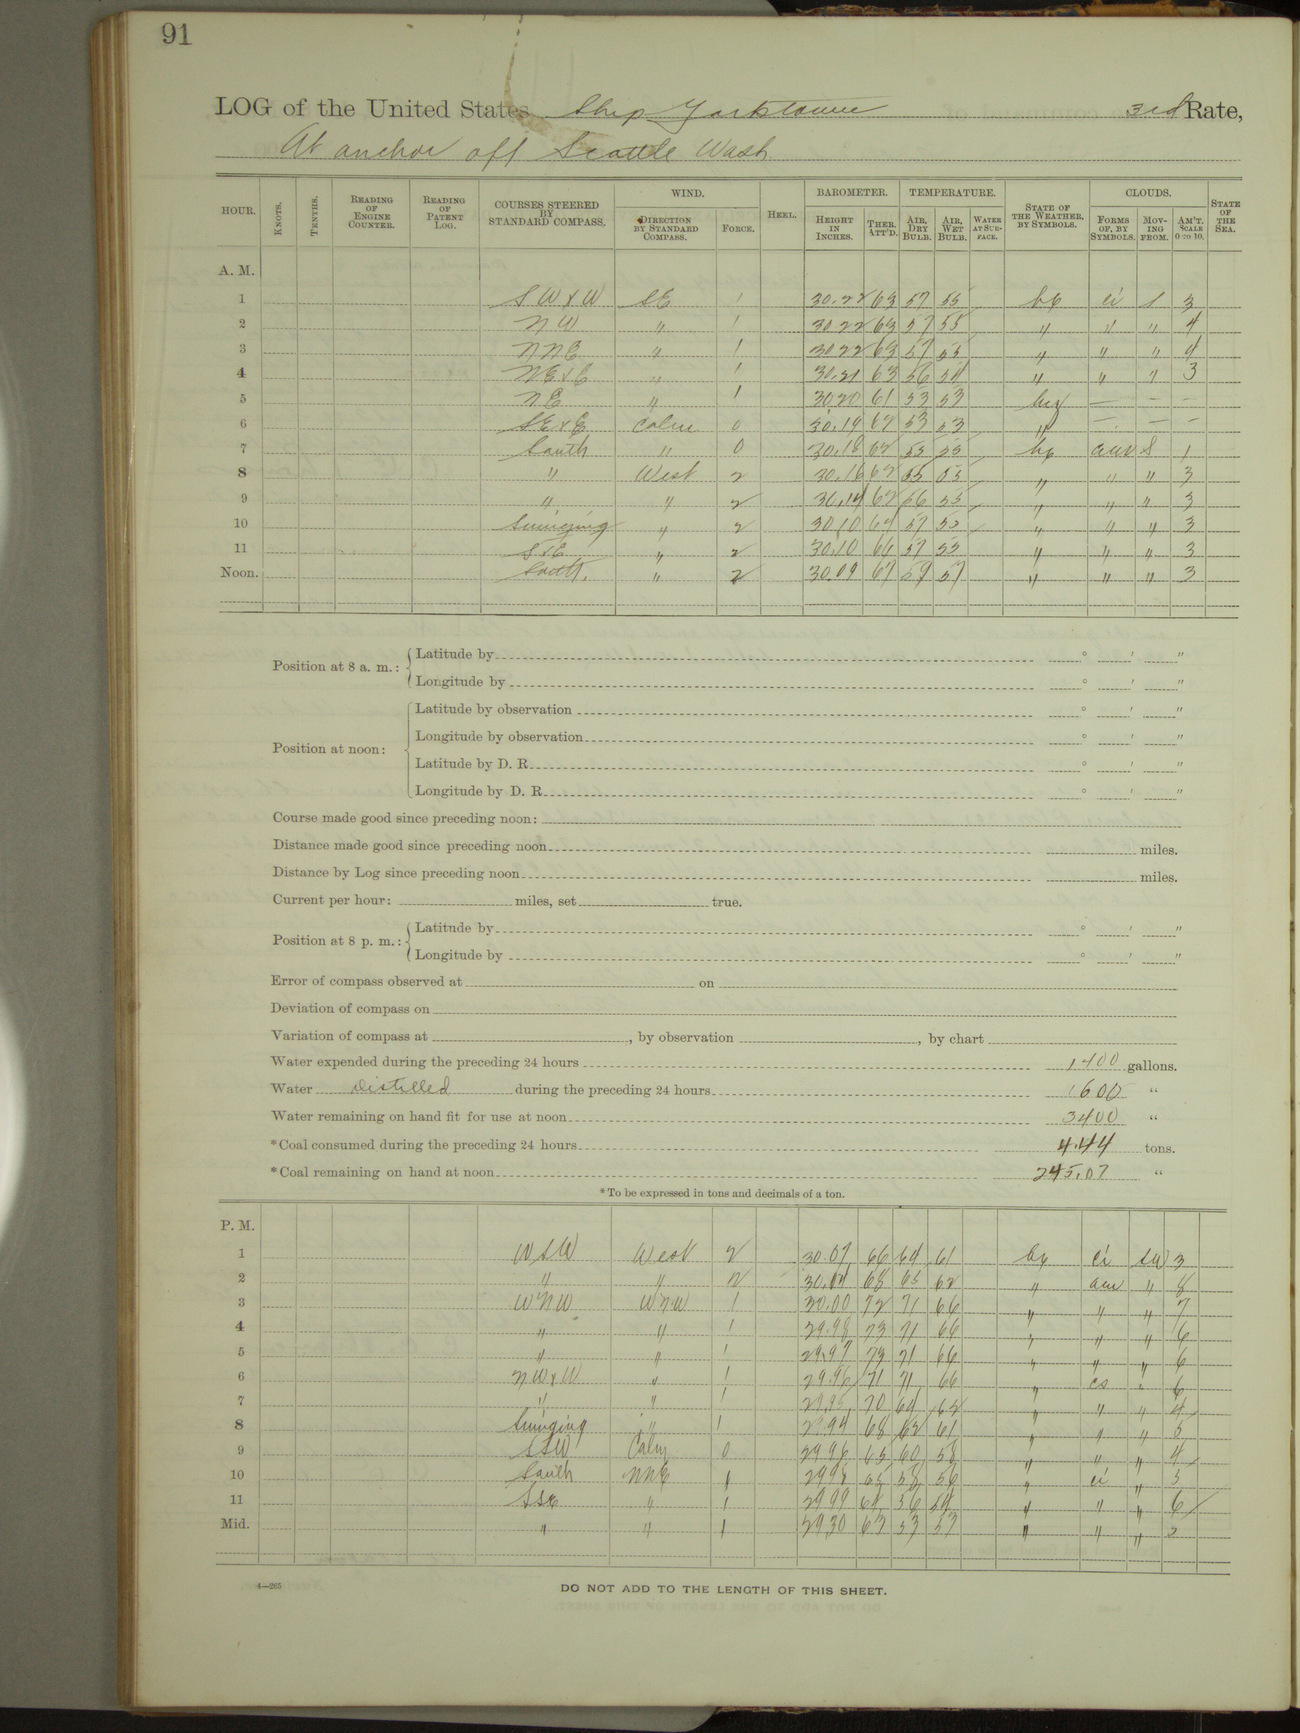 91
LOG of the United States Ship Yorktown 3rd Rate,
At anchor off Seattle Wash
HOUR. KNOTS. TENTHS. READING OF ENGINE COUNTER. READING OF PATENT LOG. COURSES STEERED BY STANDARD COMPASS. WIND. DIRECTION BY STANDARD COMPASS. FORCE. HEEL. BAROMETER. HEIGHT IN INCHES. THER. ATT'D. TEMPERATURE. AIR, DRY BULB. AIR, WET BULB. WATER AT SURFACE. STATE OF THE WEATHER, BY SYMBOLS. CLOUDS. FORMS OF, BY SYMBOLS. MOVING FROM. AM'T. SCALE 0 TO 10. STATE OF THE SEA.
A. M.
1 SW x W SE 1 30.22 63 57 55 bc ci S 3
2 NW " 1 30 22 63 57 55 " " " 4
3 NNE " 1 30 22 63 57 55 " " " 4
4 NE x E " 1 30.21 63 56 54 " " " 3
5 NE " 1 30 20 61 53 53 — — —
6 SE x E Calm 0 30.19 62 53 53 " — — —
7 South " 0 30.18 62 55 55 bc S 1
8 " West 2 30.16 62 55 55 " " " 3
9 " " 2 30.14 62 56 55 " " " 3
10 Swinging " 2 30.10 64 57 55 " " " 3
11 S x E " 2 30.10 66 57 55 " " " 3
Noon. South. " 2 30.09 67 59 57 " " " 3
Position at 8 a. m.: Latitude by ° ' "
Longitude by ° ' "
Position at noon: Latitude by observation ° ' "
Longitude by observation ° ' "
Latitude by D. R. ° ' "
Longitude by D. R. ° ' "
Course made good since preceding noon:
Distance made good since preceding noon miles.
Distance by Log since preceding noon miles.
Current per hour: miles, set true.
Position at 8 p. m.: Latitude by ° ' "
Longitude by ° ' "
Error of compass observed at on
Deviation of compass on
Variation of compass at , by observation , by chart
Water expended during the preceding 24 hours 1400 gallons.
Water Distilled during the preceding 24 hours 1600 "
Water remaining on hand fit for use at noon 3400 "
*Coal consumed during the preceding 24 hours 4.44 tons.
*Coal remaining on hand at noon 245.07 "
*To be expressed in tons and decimals of a ton.
P. M.
1 WSW West 2 30.07 66 64 61 bc ci SW 3
2 " " 2 30.04 68 65 62 " acu " 8
3 WNW WNW 1 30.00 72 71 66 " " " 7
4 " " 1 29.98 73 71 66 " " " 6
5 " " 1 29.97 73 71 66 " " " 6
6 NW x W " 1 29.96 71 71 66 " cs " 6
7 " " 1 29.95 70 64 62 " " " 4
8 Swinging " 1 29.94 68 62 61 " " " 5
9 SSW Calm 0 29 96 65 60 58 " " " 4
10 South NNE 1 29 98 65 58 56 " ci " 3
11 SSE " 1 29 99 64 56 54 " " " 6
Mid. " " 1 29 30 63 53 53 " " " 2
4—265
DO NOT ADD TO THE LENGTH OF THIS SHEET.